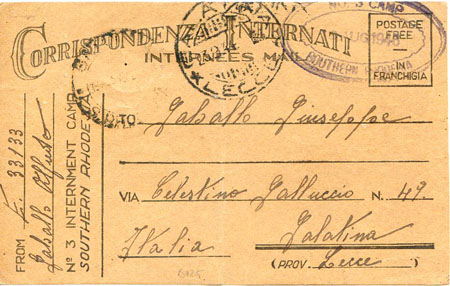 CORRISPONDENZA INTERNATI
INTERNEES MAIL
NO. 3 CAMP
AUG 194
SOUTHERN RHODESIA
POSTAGE
FREE
IN
FRANCHIGIA
LECCE
TO Gaballo Giuseppe
VIA Celestino Galluccio N. 49.
Italia Galatina
(PROV. Lecce)
FROM E. 33/33
Gaballo
Nº 3 INTERNMENT CAMP
SOUTHERN RHODESIA